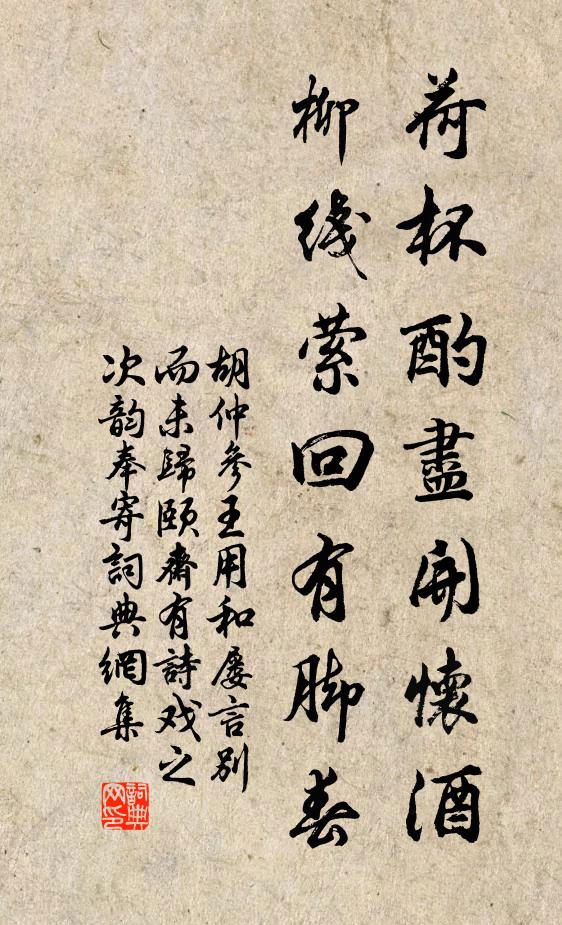 荷杯酌盡開懷酒
柳綫縈回有脚春
胡仲參王用和屡言別
而未歸頤齋有詩戏之
次韵奉寄詞典網集
詞典網印